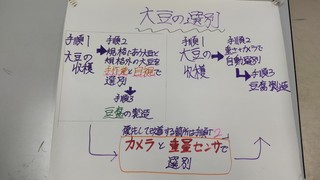 大豆の選別
手順1
大豆の
収穫
手順2
規格にあう大豆と
規格外の大豆を
手作業と目視で
選別
手順3
豆腐の製造
手順1
大豆の
収穫
手順2
重さやカメラで
自動選別
手順3
豆腐製造
優先して改善する箇所は手順2
カメラと重量センサで
選別